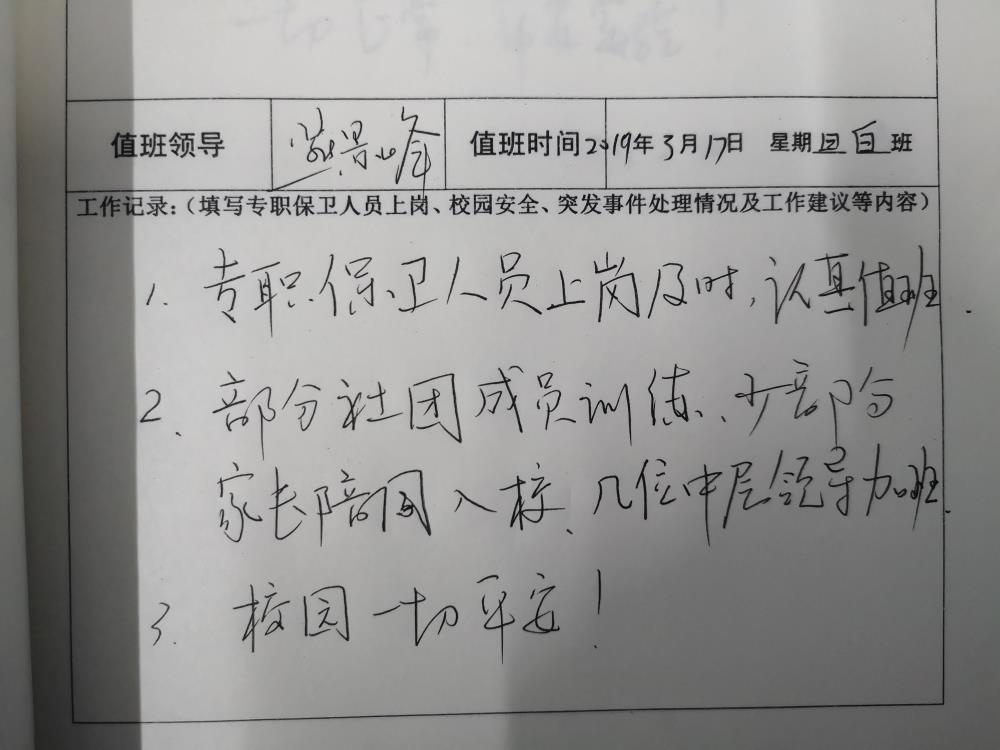 值班领导 景峰 值班时间 2019年3月17日 星期日白班
工作记录:(填写专职保卫人员上岗、校园安全、突发事件处理情况及工作建议等内容)
1. 专职保卫人员上岗及时,认真值班.
2、部分社团成员训练、少部分
家长陪同入校、几位中层领导加班.
3. 校园一切平安!